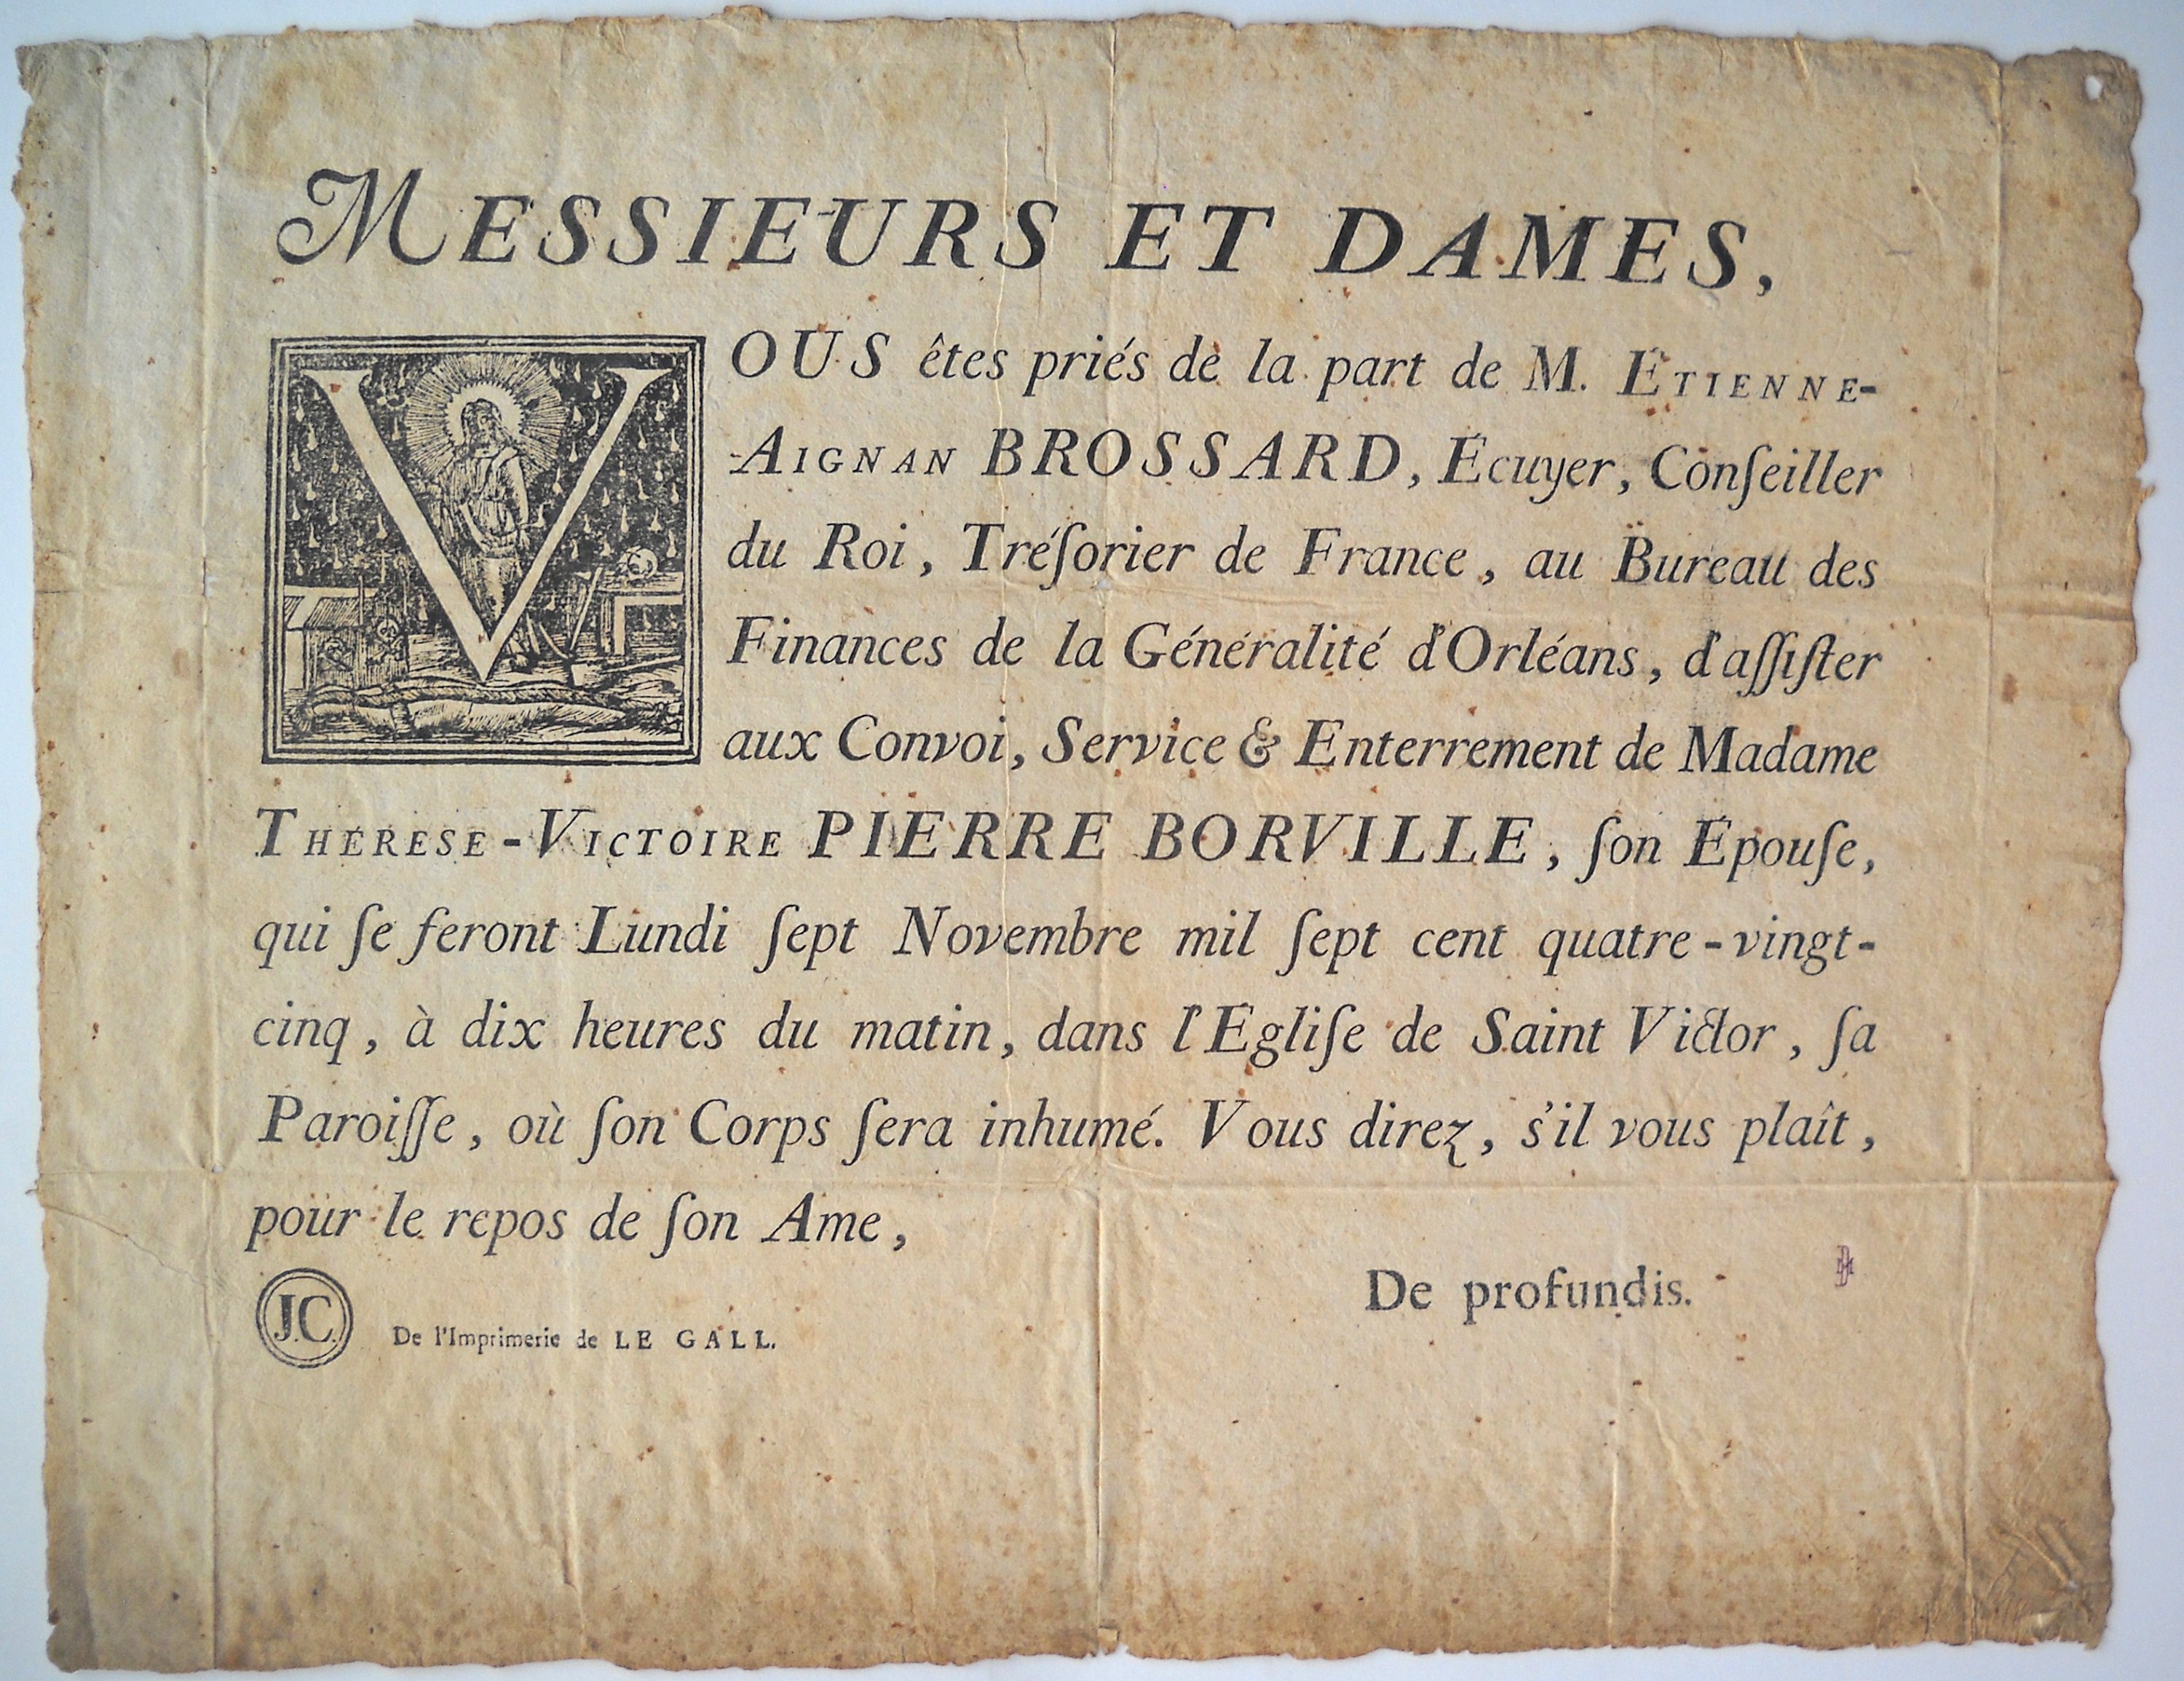 MESSIEURS ET DAMES,
VOUS êtes priés de la part de M. ÉTIENNE-
-AIGNAN BROSSARD, Écuyer, Conſeiller
du Roi, Tréſorier de France, au Bureau des
Finances de la Généralité d'Orléans, d'aſſiſter
aux Convoi, Service & Enterrement de Madame
THÉRESE-VICTOIRE PIERRE BORVILLE, ſon Épouſe,
qui ſe feront Lundi ſept Novembre mil ſept cent quatre-vingt-
cinq, à dix heures du matin, dans l'Égliſe de Saint Victor, ſa
Paroiſſe, où ſon Corps ſera inhumé. Vous direz, s'il vous plaît,
pour le repos de ſon Ame,
De profundis.
J.C.
De l'Imprimerie de LE GALL.